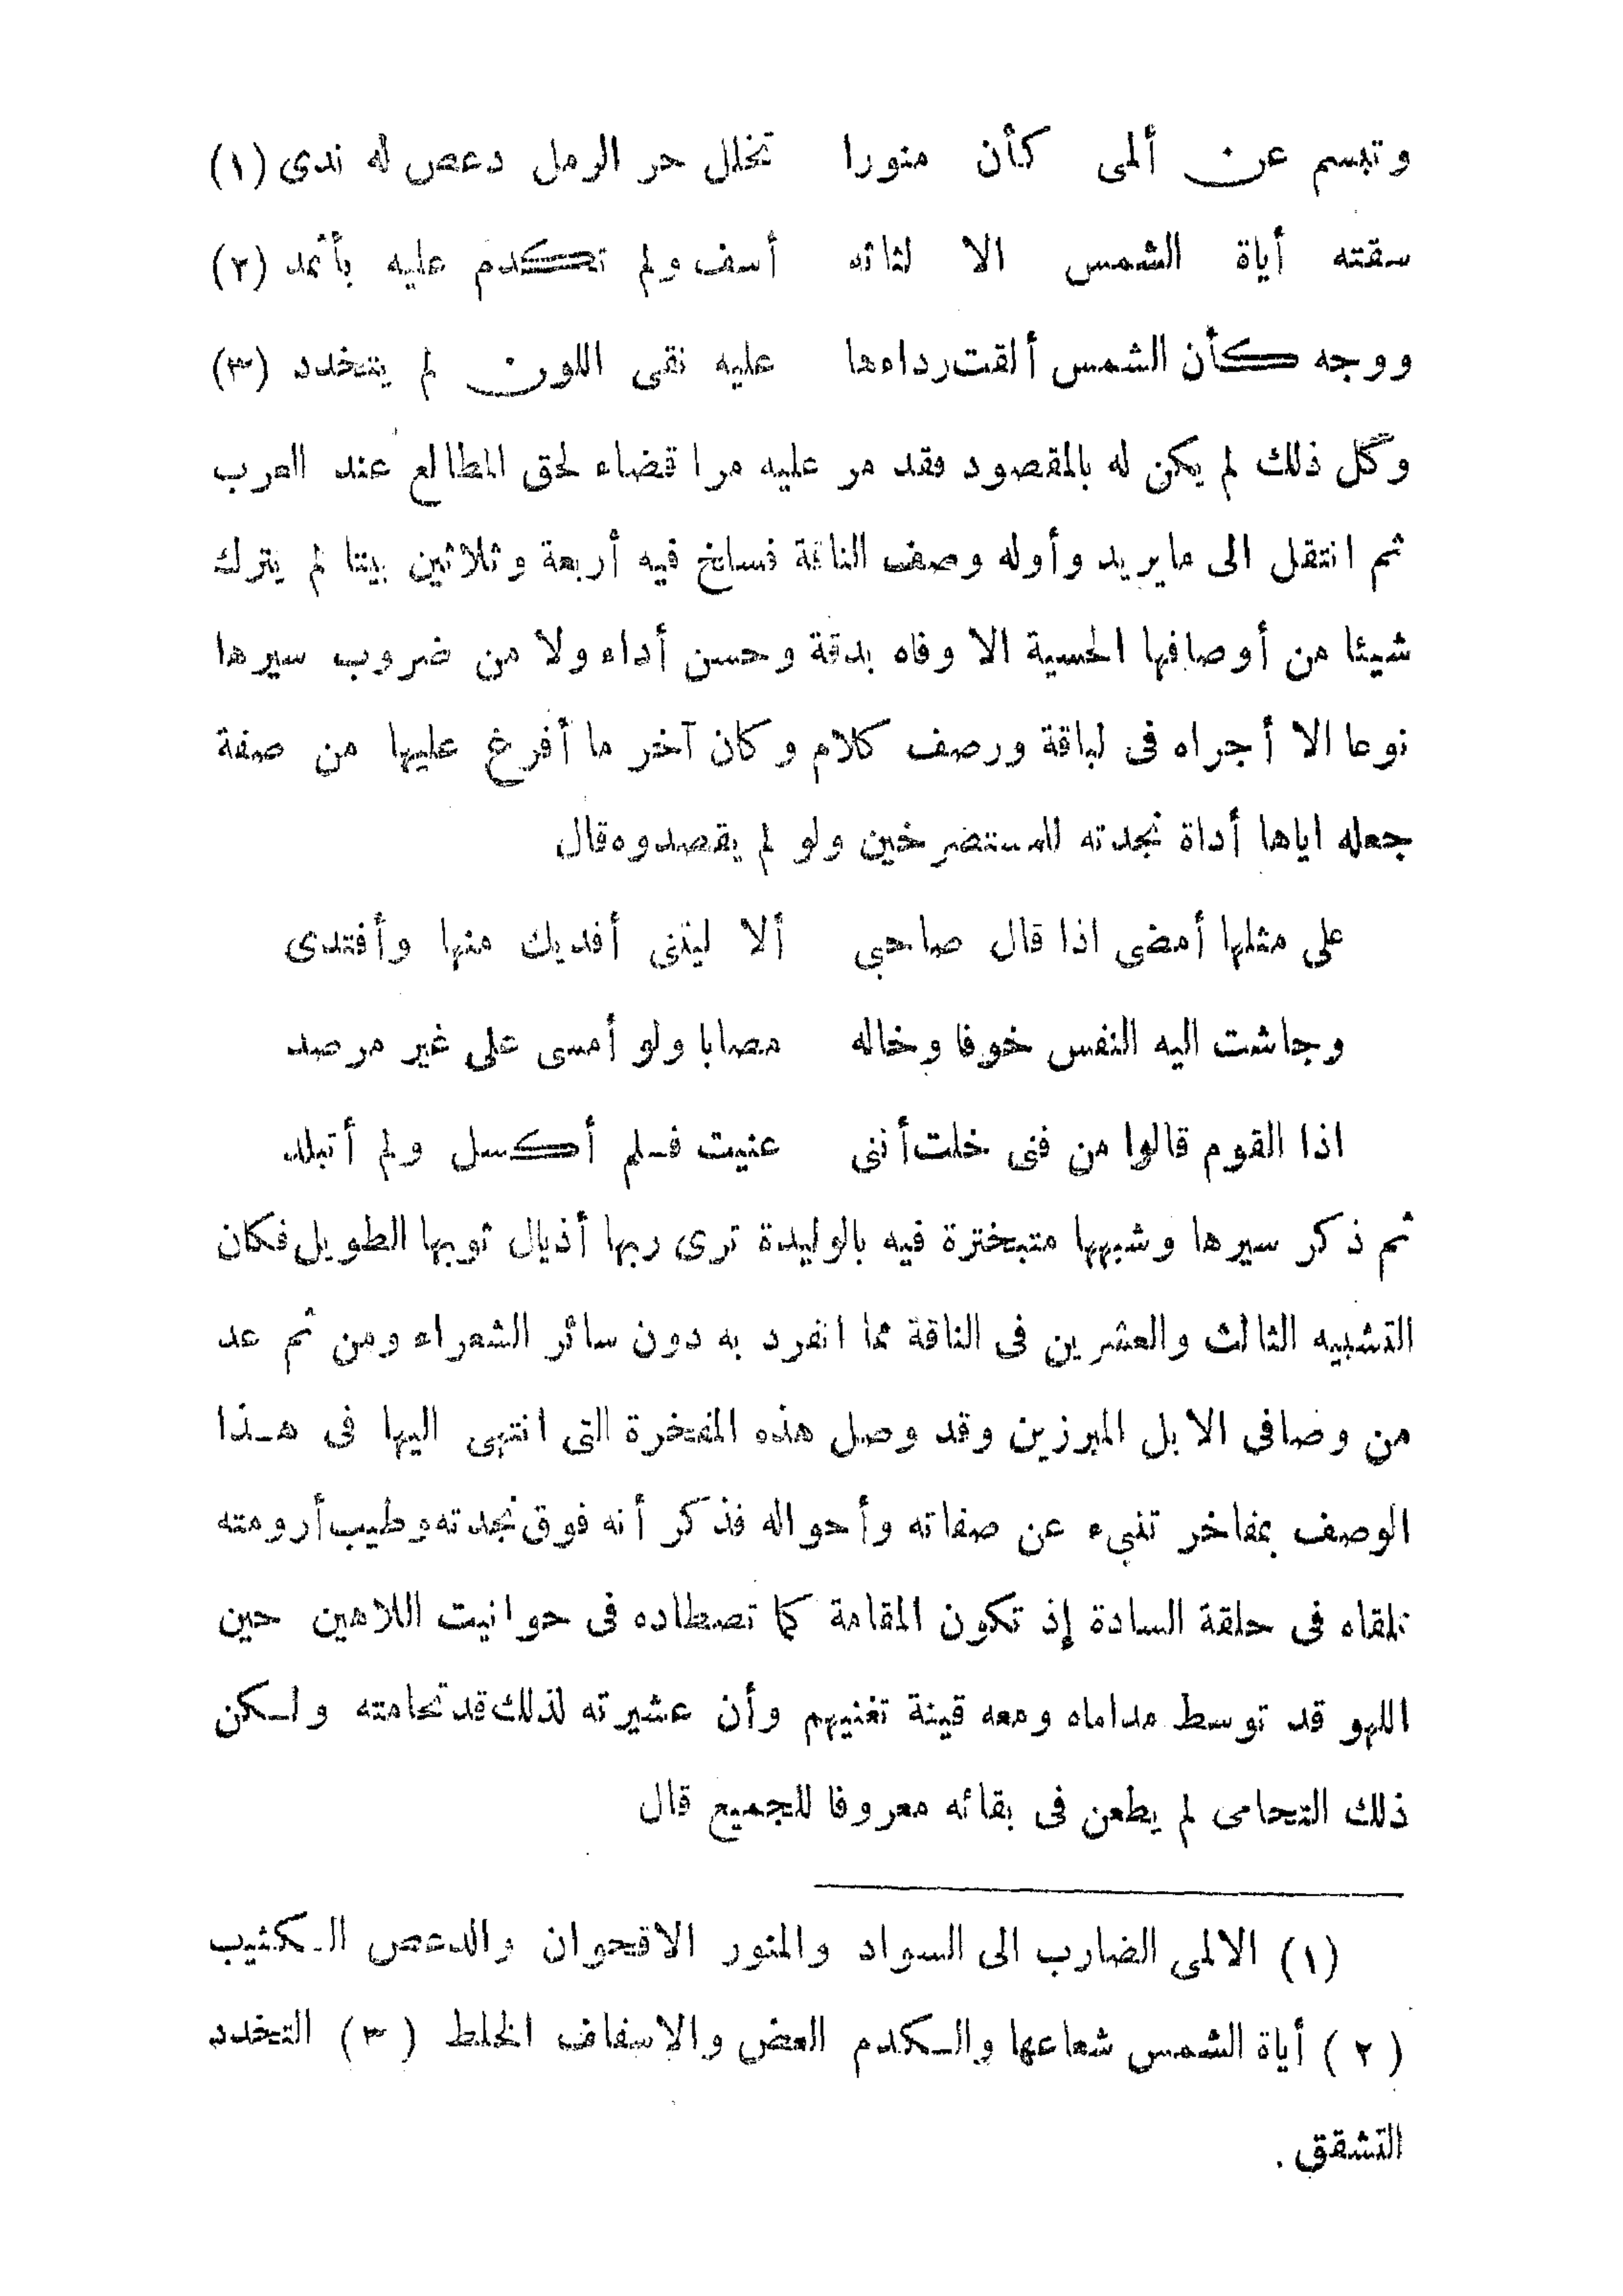 وتبسم عن ألمى كأن منورا تخلل حر الرمل دعص له ندى (١)
سقته أياة الشمس الا لثاته أسف ولم تكدم عليه بأثمد (٢)
ووجه كأن الشمس ألقت رداءها عليه نقى اللون لم يتخدد (٣)
وكل ذلك لم يكن له بالمقصود فقد مر عليه مرا قضاء لحق المطالع عند العرب
ثم انتقل الى ما يريد وأوله وصف الناقة فسلخ فيه أربعة وثلاثين بيتا لم يترك
شيئا من أوصافها الحسية الا وفاه بدقة وحسن أداء ولا من ضروب سيرها
نوعا الا أجراه فى لباقة ورصف كلام وكان آخر ما أفرغ عليها من صفة
جعله اياها أداة نجدته للمستصرخين ولو لم يقصدوه قال
على مثلها أمضى اذا قال صاحبي ألا ليتنى أفديك منها وأفتدى
وجاشت اليه النفس خوفا وخاله مصابا ولو أمسى على غير مرصد
اذا القوم قالوا من فتى خلت أننى عنيت فلم أكسل ولم أتبلد
ثم ذكر سيرها وشبهها متبخترة فيه بالوليدة ترى ربها أذيال ثوبها الطويل فكان
التشبيه الثالث والعشرين فى الناقة مما انفرد به دون سائر الشعراء ومن ثم عد
من وصافى الابل المبرزين وقد وصل هذه المفخرة التى انتهى اليها فى هذا
الوصف بمفاخر تنبىء عن صفاته وأحواله فذكر أنه فوق نجدته وطيب أرومته
تلقاه فى حلقة السادة إذ تكون المقامة كما تصطاده فى حوانيت اللاهين حين
اللهو قد توسط مداماه ومعه قينة تغنيهم وأن عشيرته لذلك قد تحامته ولكن
ذلك التحامى لم يطعن فى بقائه معروفا للجميع قال
(١) الالمى الضارب الى السواد والمنور الاقحوان والدعص الكثيب
(٢) أياة الشمس شعاعها والكدم العض والاسفاف الخلط (٣) التخدد
التشقق .